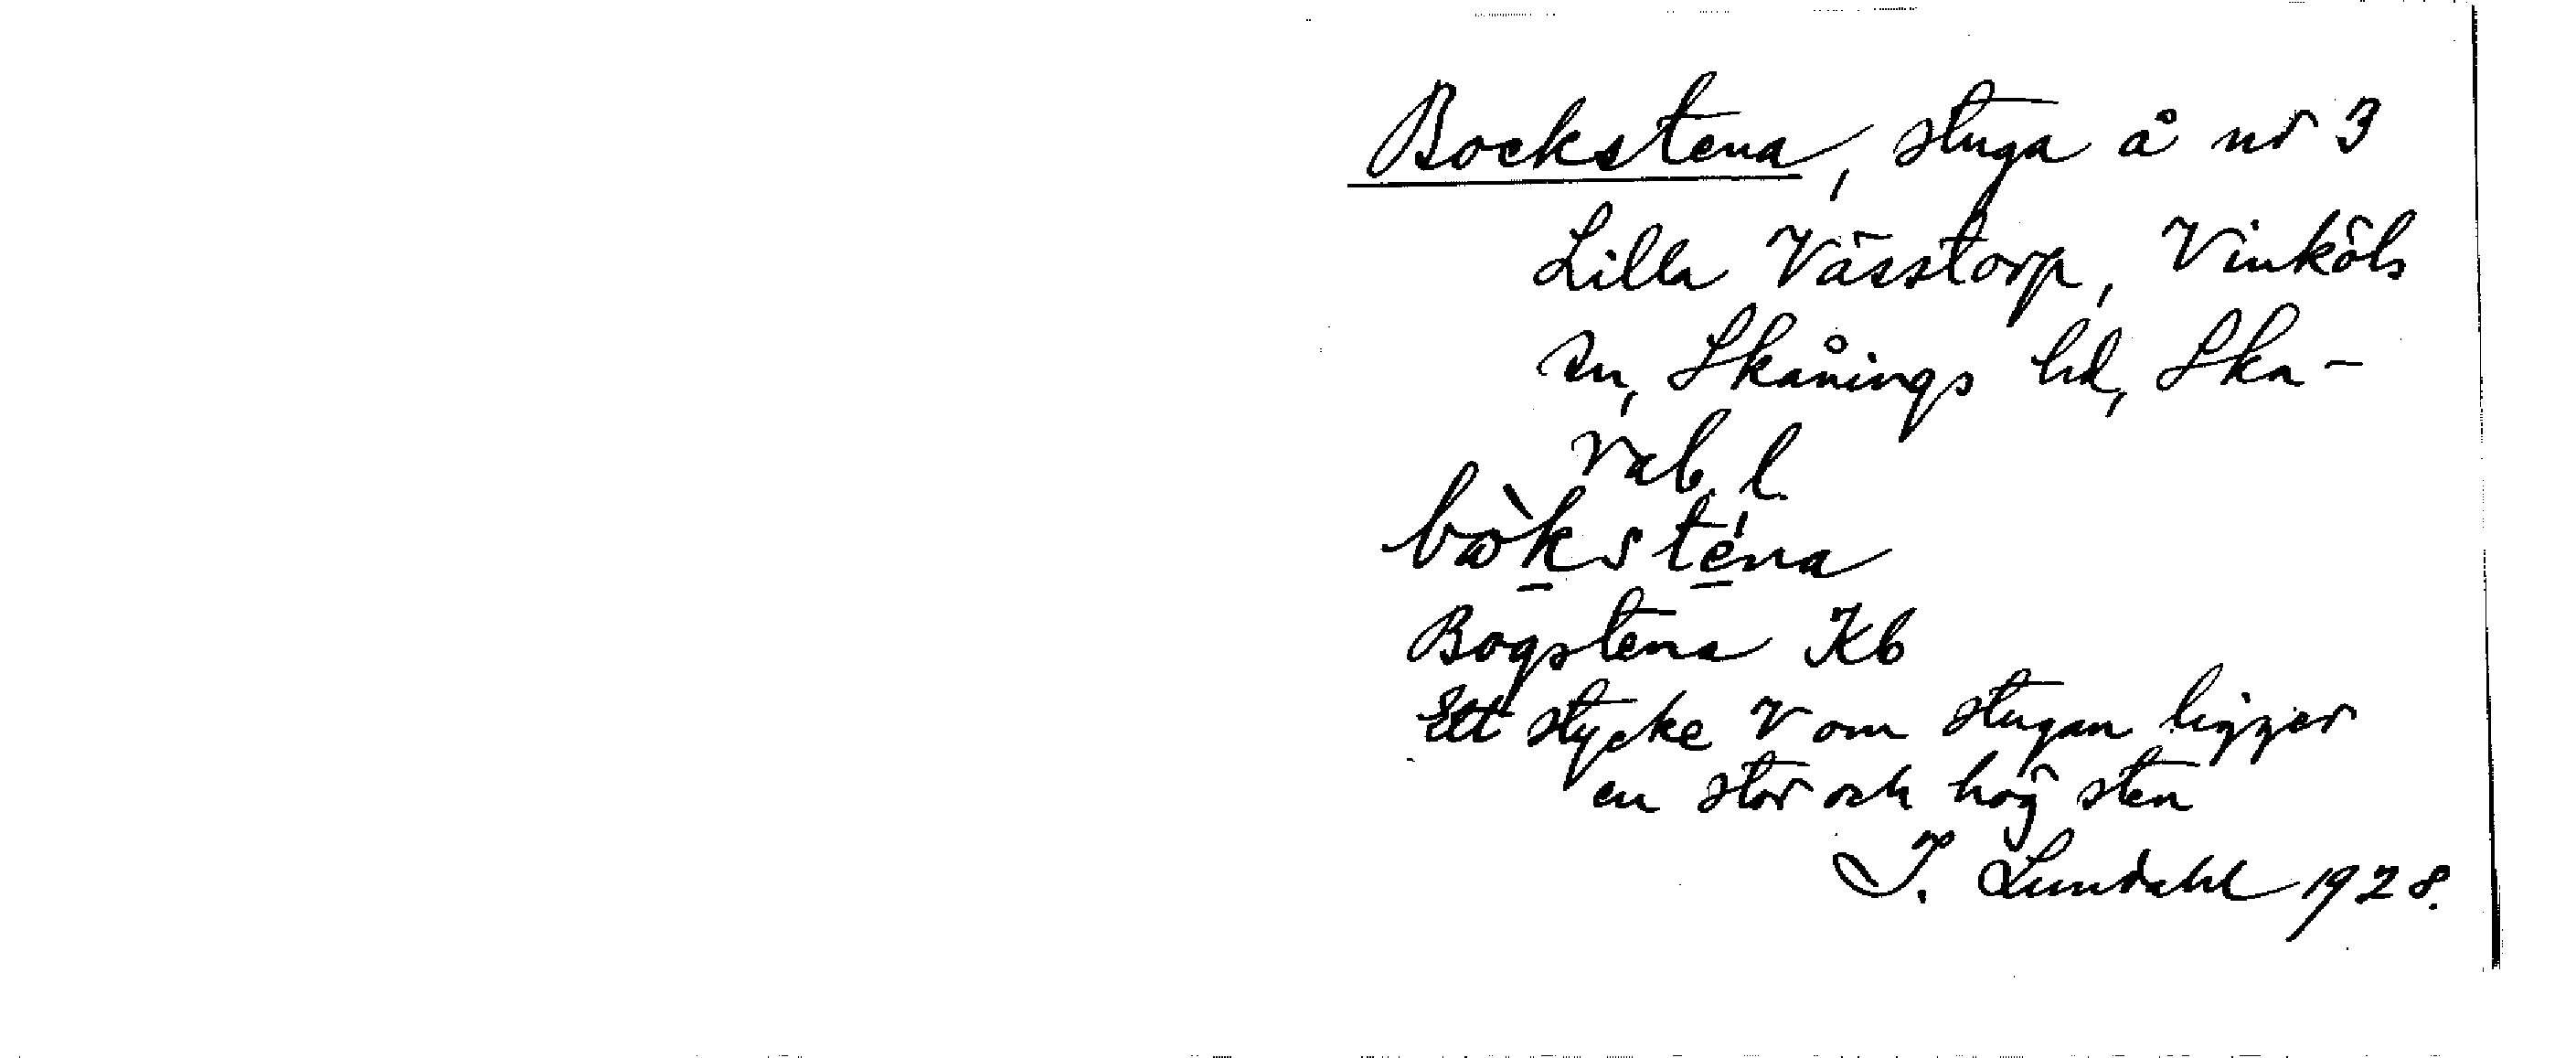 Bockstena, stuga å nr 3
Lilla Vässtorp, Vinköls
sn, Skånings hd, Ska-
rab. l.
bòkste̍na
Bogstena Kb
Ett stycke V om stugan ligger
en stor och hög sten
I. Lundahl 1928.